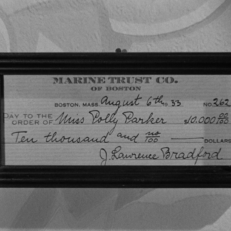 MARINE TRUST CO.
OF BOSTON
BOSTON, MASS. August 6th, 33 NO. 262
PAY TO THE
ORDER OF Miss Polly Parker $10,000 00/100
Ten thousand and no/100 DOLLARS
J. Lawrence Bradford